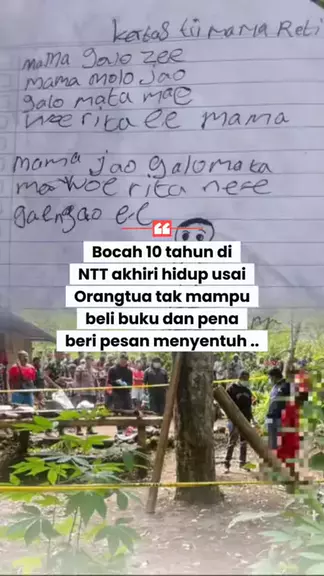 kertas tii mama Reti
mama galo zee
mama molo jao
galo mata mae
woe rita ee mama
mama jao galo mata
mae woe rita ne
gae ngao ee
❝
Bocah 10 tahun di
NTT akhiri hidup usai
Orangtua tak mampu
beli buku dan pena
beri pesan menyentuh ..